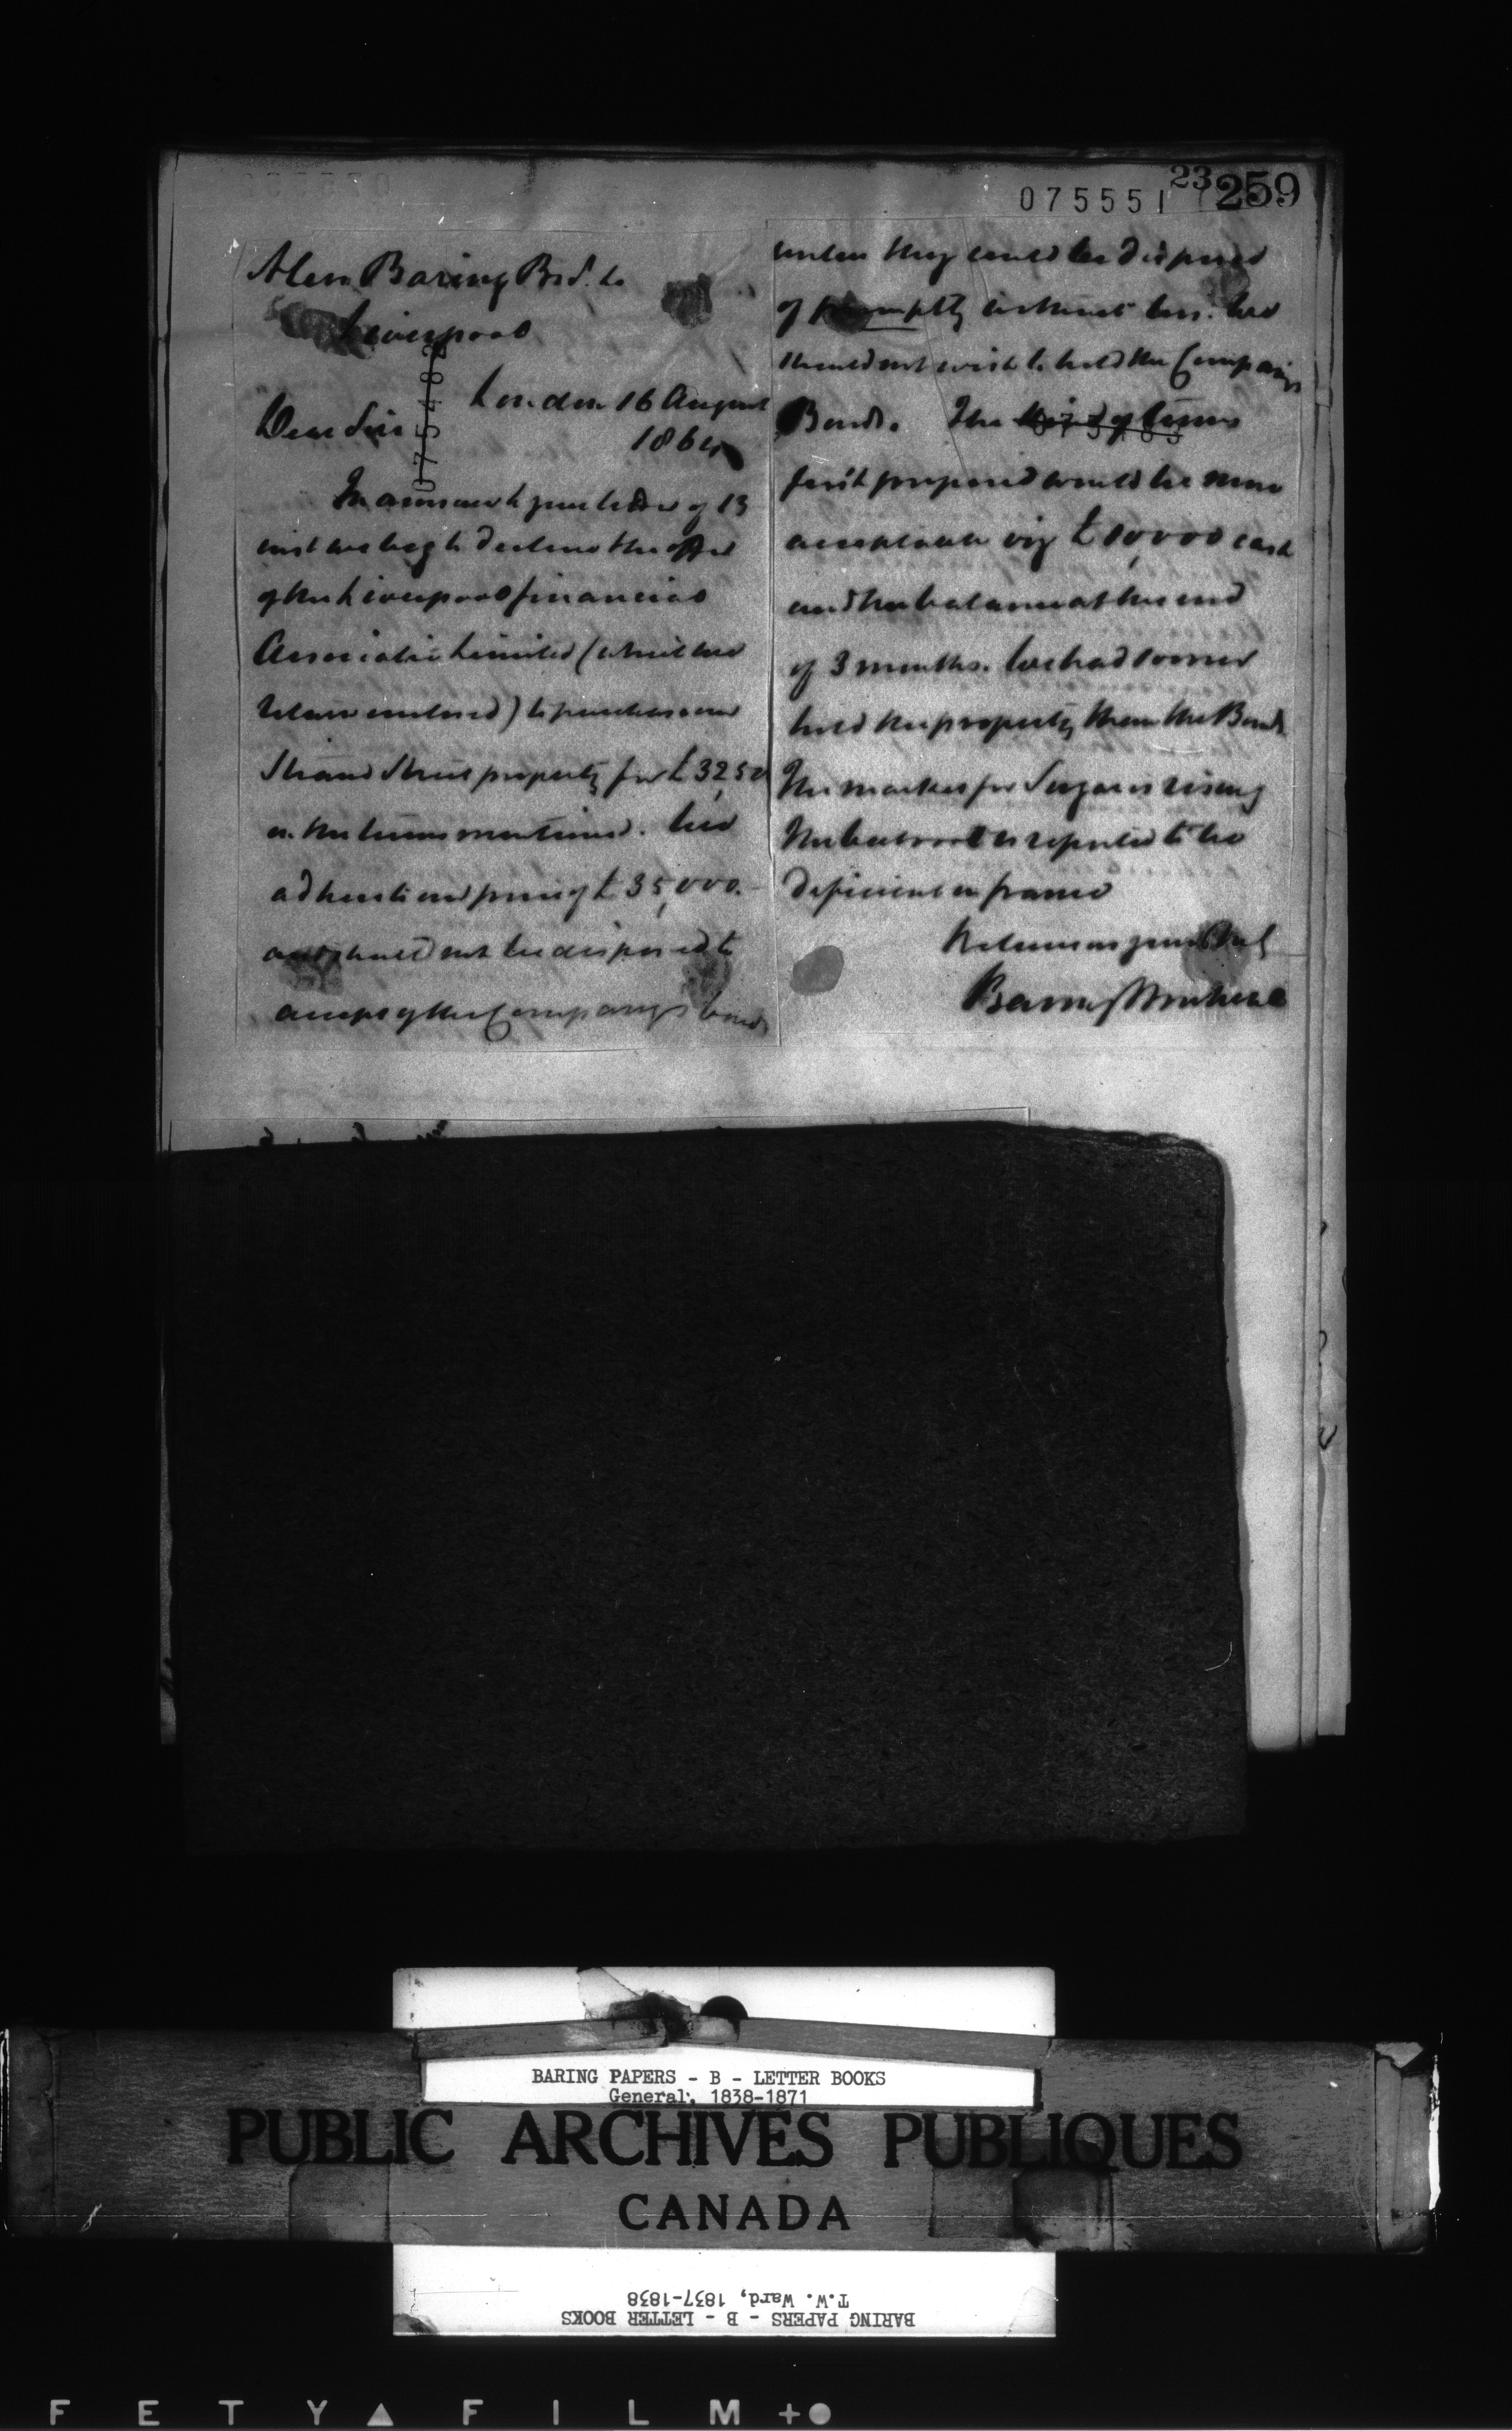 23 259
075551
Messrs Baring Bros. &c
Liverpool
075482
London 16 August
1864
Dear Sirs
In answer to your letter of 13
inst we beg to decline the offer
of the Liverpool financial
Association Limited (which we
return enclosed) to purchase our
Strand Street property for £ 32,500
on the terms mentioned. We
adhere to our price of £ 35,000.
and should not be disposed to
accept of the Companys bonds
unless they could be disposed
of promptly without loss. We
should not wish to hold the Companys
Bonds. The kind of terms
075483
first proposed would be more
acceptable viz £ 10,000 cash
and the balance at the end
of 3 months. We had sooner
hold the property than the Bonds
The market for Sugar is rising
The beetroot is reported to be
deficient in france
BARING PAPERS - B - LETTER BOOKS
General, 1838-1871
PUBLIC ARCHIVES PUBLIQUES
CANADA
T.W. Ward, 1837-1838
BARING PAPERS - B - LETTER BOOKS
F E T Y ▲ F I L M +●